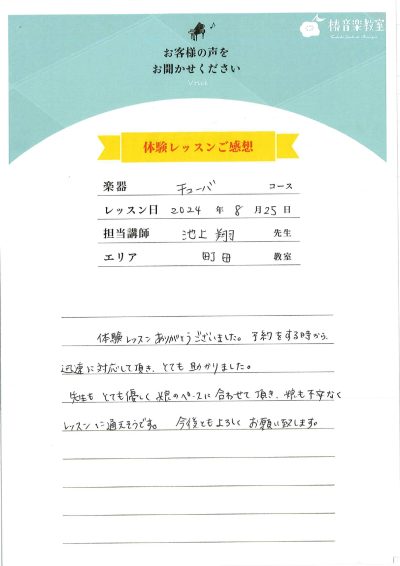 椿音楽教室
お客様の声を
お聞かせください
VOICE
体験レッスンご感想
楽器 チューバ コース
レッスン日 2024 年 8 月 25 日
担当講師 池上 翔 先生
エリア 町田 教室
体験レッスンありがとうございました。予約をする時から、
迅速に対応して頂き、とても助かりました。
先生も とても優しく 娘のペースに合わせて頂き、娘も不安なく
レッスンに通えそうです。 今後ともよろしく お願い致します。